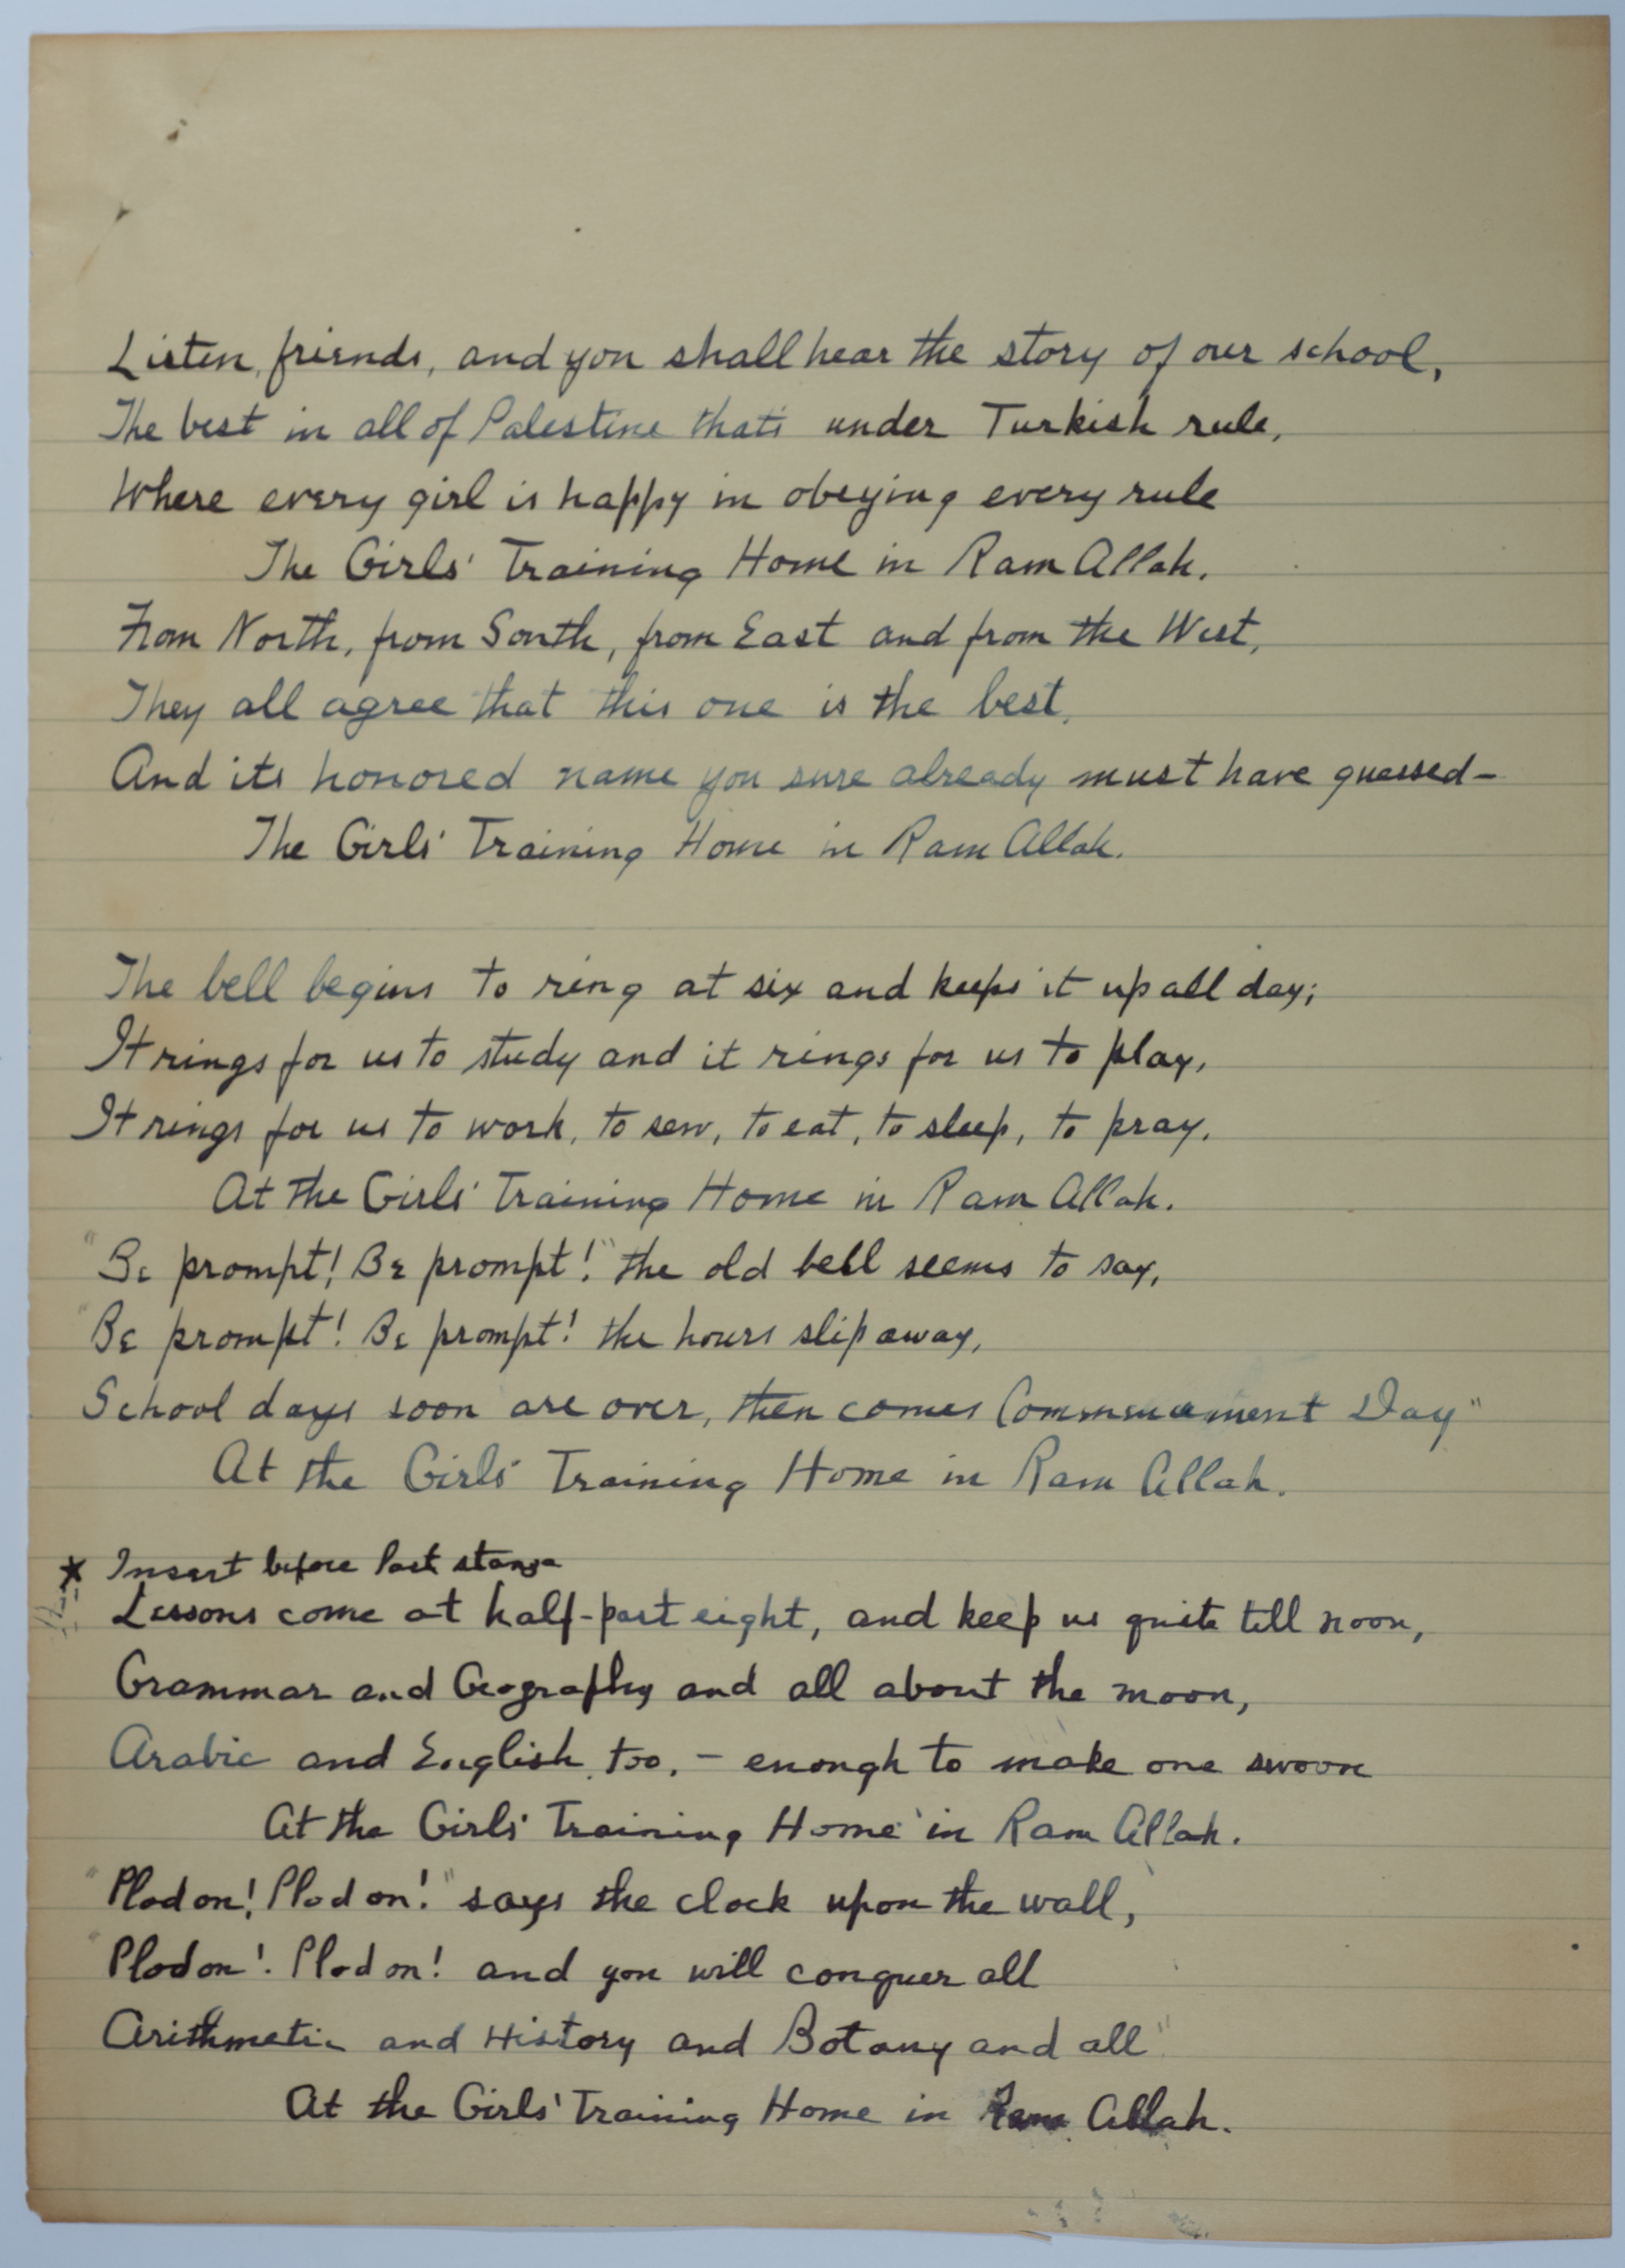 Listen, friends, and you shall hear the story of our school,
The best in all of Palestine that's under Turkish rule,
Where every girl is happy in obeying every rule
The Girls' Training Home in Ram Allah.
From North, from South, from East and from the West,
They all agree that this one is the best,
And its honored name you sure already must have guessed-
The Girls' Training Home in Ram Allah.
The bell begins to ring at six and keeps it up all day;
It rings for us to study and it rings for us to play,
It rings for us to work, to sew, to eat, to sleep, to pray.
At the Girls' Training Home in Ram Allah.
"Be prompt! Be prompt!" the old bell seems to say,
"Be prompt! Be prompt! the hours slip away,
School days soon are over, then comes Commencement Day"
At the Girls' Training Home in Ram Allah.
* Insert before last stanza
Lessons come at half-past eight, and keep us quite till noon,
Grammar and Geography and all about the moon,
Arabic and English, too, - enough to make one swoon
At the Girls' Training Home in Ram Allah.
"Plod on! Plod on!" says the clock upon the wall,
"Plod on! Plod on! and you will conquer all
Arithmetic and History and Botany and all"
At the Girls' Training Home in Ram Allah.